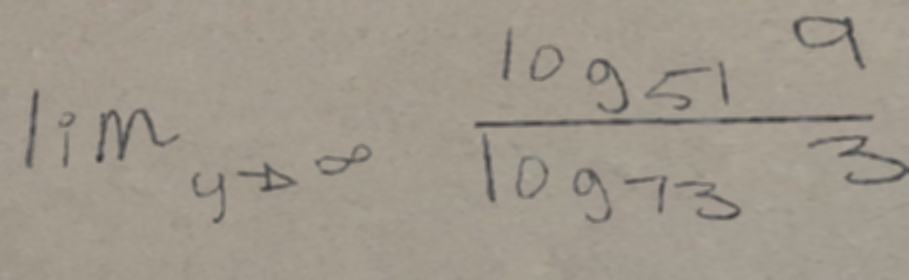 lim y→∞ log51 9
log73 3